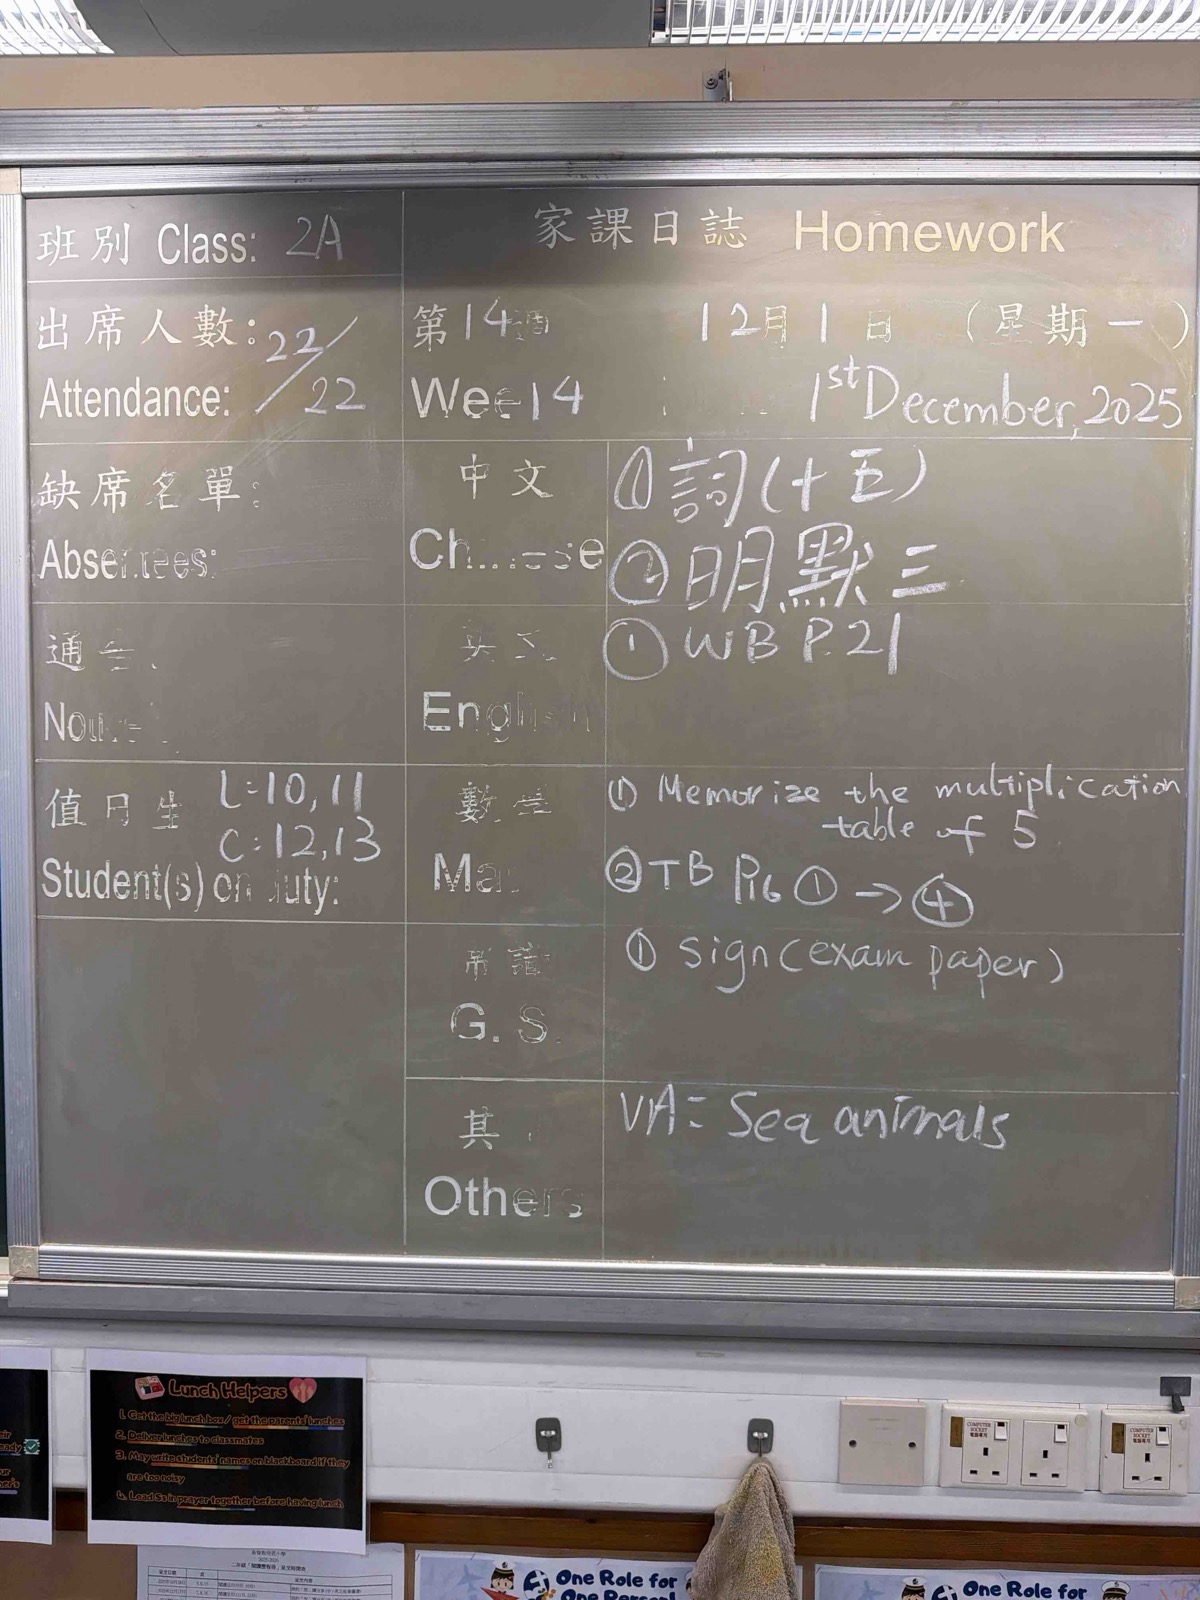 班別 Class: 2A
家課日誌 Homework
出席人數: 22/22
Attendance:
第14週 12月1日 (星期一)
Wee 14 1st December, 2025
缺席名單:
Absentees:
中文
Chinese
① 詞(十五)
② 明默三
通告
英文
English
① WB P.21
值日生 L:10,11
C:12,13
Student(s) on duty:
數學
Ma
① Memorize the multiplication
table of 5
② TB P.16 ① → ④
常識
G. S.
① sign (exam paper)
其
Others
VA: Sea animals
Lunch Helpers
1. Get the big lunch box / get the parents' lunches
2. Deliver lunches to classmates
3. May write students' names on blackboard if they
are too noisy
4. Lead Ss in prayer together before having lunch
COMPUTER SOCKET
電腦專用
COMPUTER SOCKET
電腦專用
One Role for
One Person!
One Role for